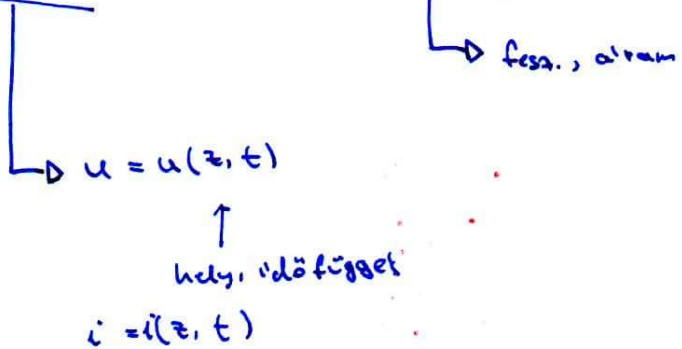 fesz., áram
u = u(z, t)
↑
hely, időfügget
i = i(z, t)